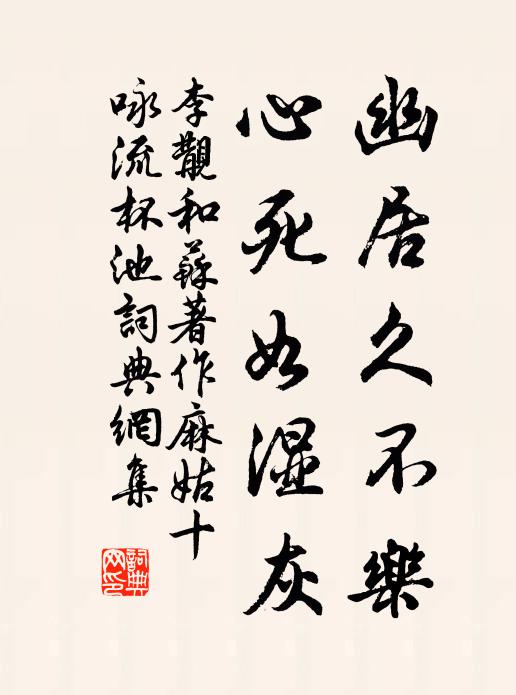 幽居久不樂
心死如湿灰
李覯和蘇著作麻姑十
咏流杯池詞典網集
詞典
网印